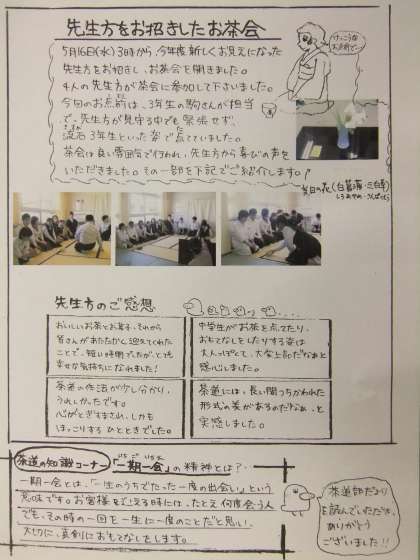 先生方をお招きしたお茶会
5月16日(水)3時から、今年度新しくお見えになった
先生方をお招きし、お茶会を開きました。
4人の先生方が茶会に参加して下さいました。
今回のお点前は、3年生の駒さんが担当
で、先生方が見守る中でも緊張せず、
流石3年生といった姿で点てていました。
茶会は良い雰囲気で行われ、先生方から喜びの声を
いただきました。その一部を下記でご紹介します。
けっこうな
お点前で…
先生方のご感想
おいしいお茶とお菓子、それから
皆さんがあたたかく迎えてくれた
ことで、短い時間でしたが、とても
幸せな気持ちになれました!
中学生がお茶を点てたり、
おもてなしをしたりする姿は
大人っぽくて、大変上品だなぁと
感心しました。
茶道の作法が少し分かり、
うれしかったです。
心がとぎすまされ、しかも
ほっこりするひとときでした。
茶道には、長い間つちかわれた
形式の美があるのだなぁ、と
実感しました。
茶道の知識コーナー 「一期一会」の精神とは?
いちごいちえ
一期一会とは、「一生のうちでたった一度の出会い」という
意味です。お客様をむかえる時には、たとえ何度会う人
でも、その時の一回を一生に一度のことだと思い、
大切に、真剣におもてなしをします。
茶道部だより
を読んでいただき、
ありがとう
ございました!!